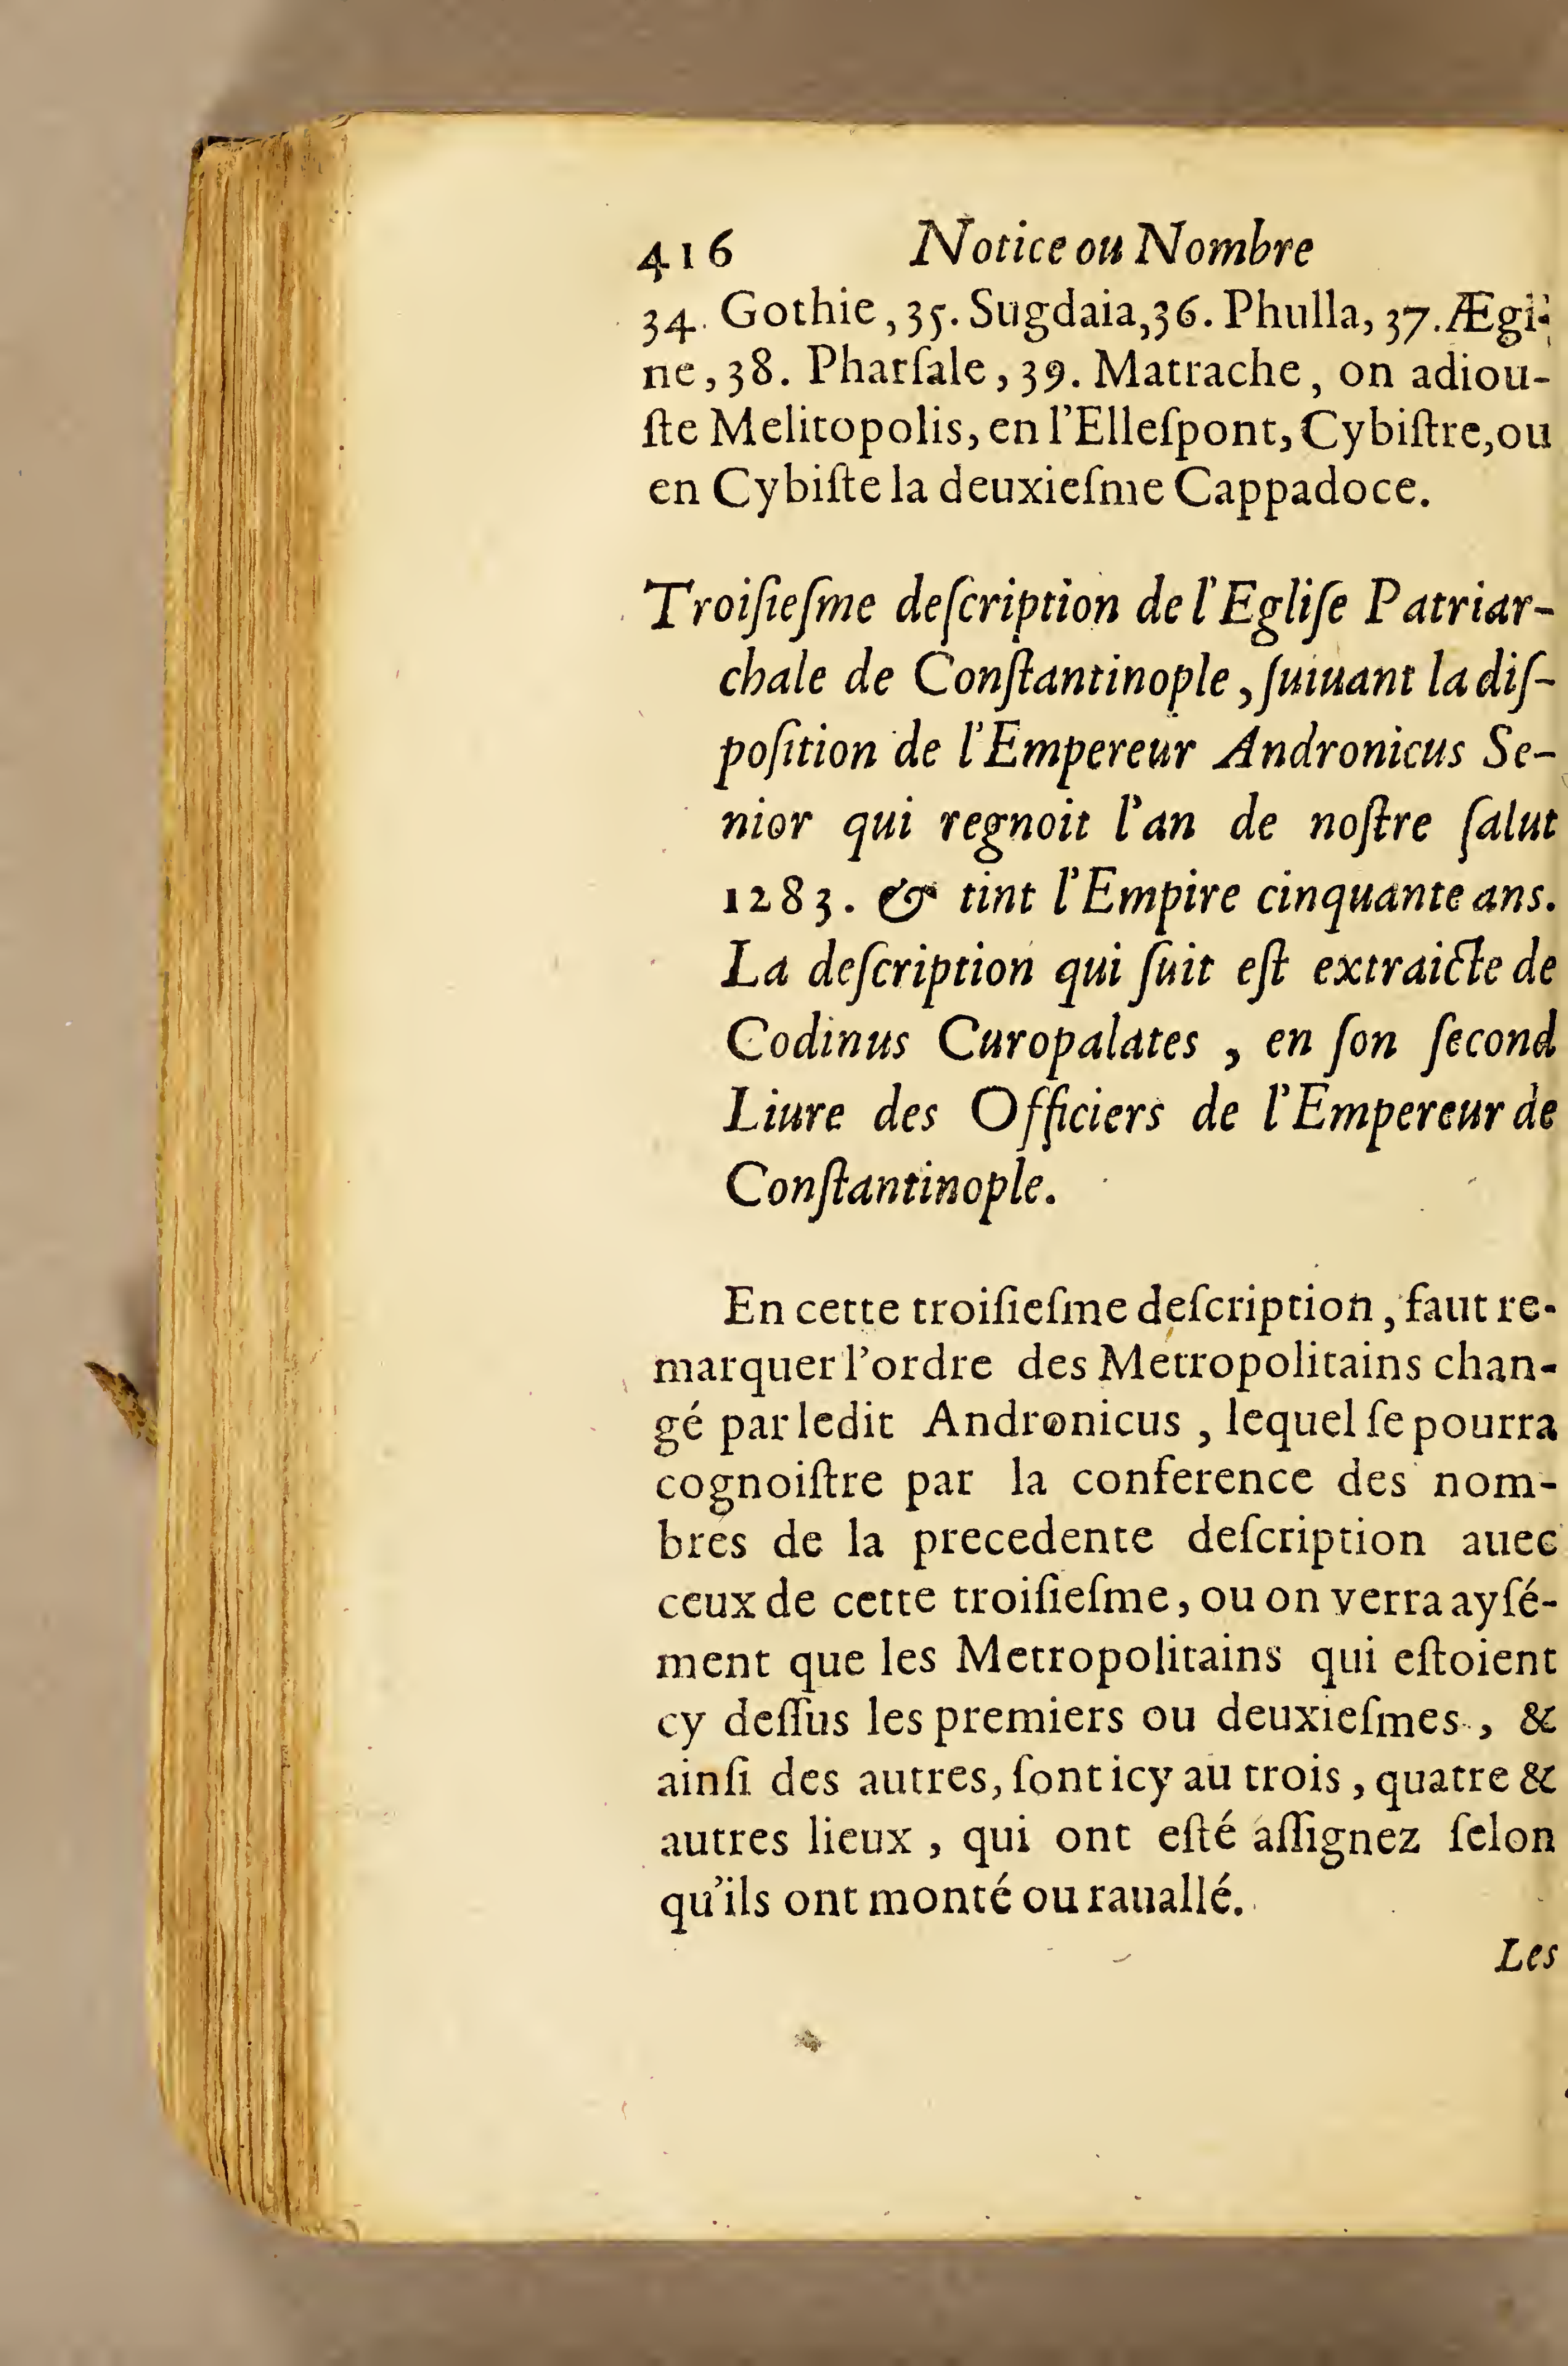 416 Notice ou Nombre
34. Gothie, 35. Sugdaia, 36. Phulla, 37. Ægi-
ne, 38. Pharſale, 39. Matrache, on adiou-
ſte Melitopolis, en l'Elleſpont, Cybiſtre, ou
en Cybiſte la deuxieſme Cappadoce.
Troiſieſme deſcription de l'Egliſe Patriar-
chale de Conſtantinople, ſuiuant la diſ-
poſition de l'Empereur Andronicus Se-
nior qui regnoit l'an de noſtre ſalut
1283. & tint l'Empire cinquante ans.
La deſcription qui ſuit eſt extraicte de
Codinus Curopalates, en ſon ſecond
Liure des Officiers de l'Empereur de
Conſtantinople.
En cette troiſieſme deſcription, faut re-
marquer l'ordre des Metropolitains chan-
gé par ledit Andronicus, lequel ſe pourra
cognoiſtre par la conference des nom-
bres de la precedente deſcription auec
ceux de cette troiſieſme, ou on verra ayſé-
ment que les Metropolitains qui eſtoient
cy deſſus les premiers ou deuxieſmes, &
ainſi des autres, ſont icy au trois, quatre &
autres lieux, qui ont eſté aſſignez ſelon
qu'ils ont monté ou rauallé.
Les